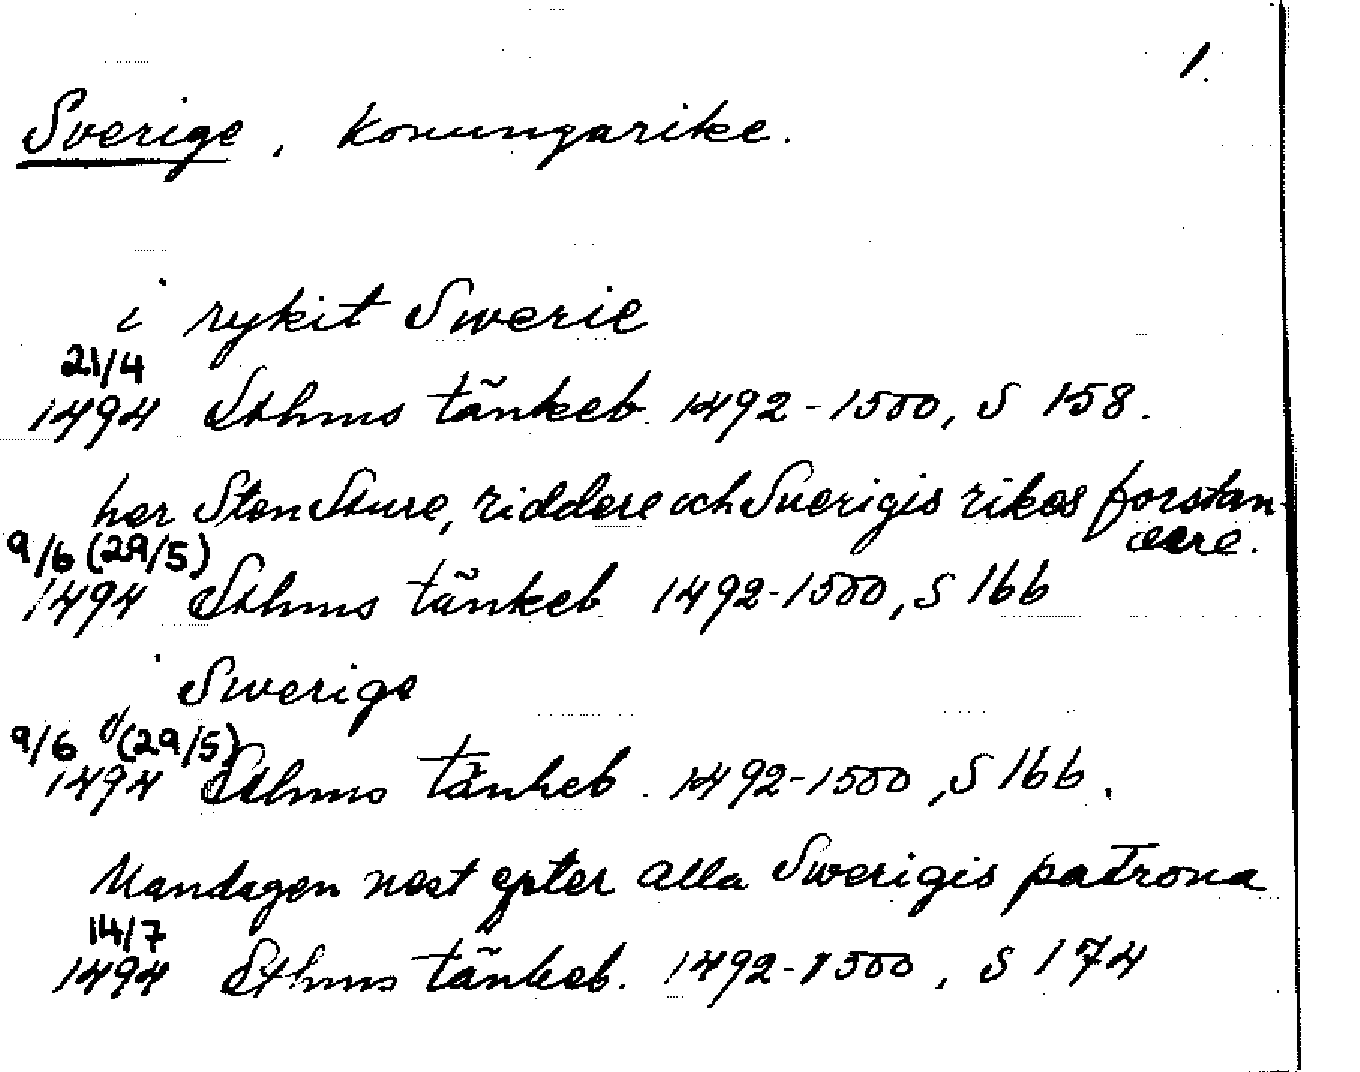 1.
Sverige, konungarike.
i rykit Swerie
21/4
1494 Sthms tänkeb. 1492-1500, S 158.
her Sten Sture, riddere och Suerigis rikes forstan-
dere.
9/6 (29/5)
1494 Sthms tänkeb 1492-1500, S 166
i Swerige
9/6 (29/5)
1494 Sthms tänkeb. 1492-1500, S 166.
Mandagen nest epter alla Swerigis patrona
14/7
1494 Sthms tänkeb. 1492-1500, S 174